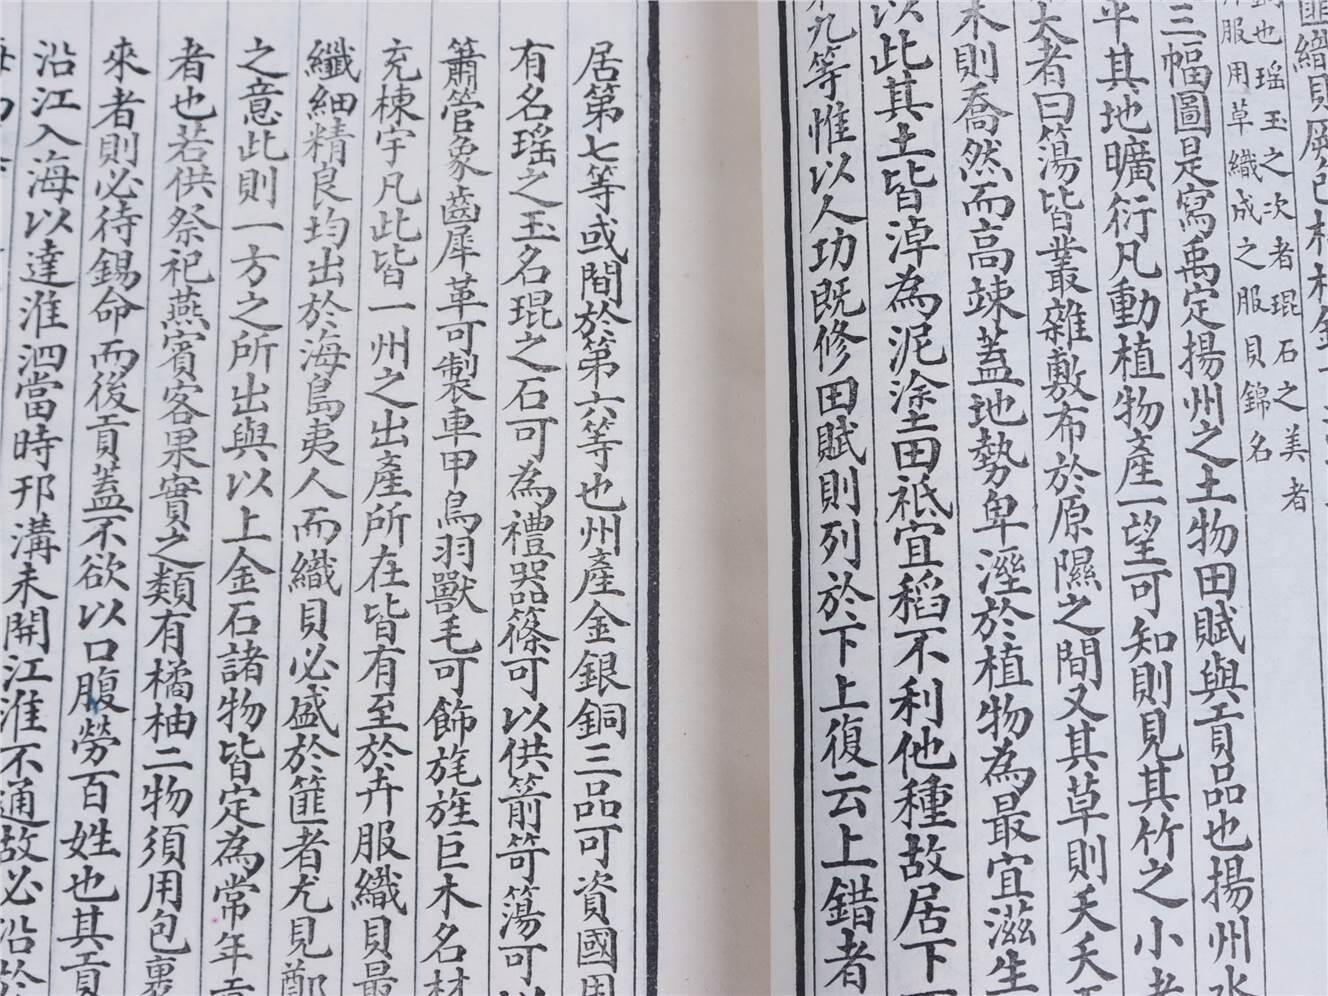 匪織貝厥包
也瑶玉之次者琨石之美者
服用草織成之服貝錦名
三幅圖是寫禹定揚州之土物田賦與貢品也揚州水
平其地曠衍凡動植物產一望可知則見其竹之小者
大者曰簜皆叢雜敷布於原隰之間又其草則夭夭
木則喬然而高竦蓋地勢卑溼於植物為最宜滋生
以此其土皆淖為泥塗土田祗宜稻不利他種故居下
九等惟以人功既修田賦則列於下上復云上錯者
居第七等或間於第六等也州產金銀銅三品可資國用
有名瑶之玉名琨之石可為禮器篠可以供箭笴簜可以
簫管象齒犀革可製車甲鳥羽獸毛可飾旄旌巨木名材
充棟宇凡此皆一州之出產所在皆有至於卉服織貝最
纖細精良均出於海島夷人而織貝必盛於篚者尤見鄭
之意此則一方之所出與以上金石諸物皆定為常年貢
者也若供祭祀燕賓客果實之類有橘柚二物須用包裹
來者則必待錫命而後貢蓋不欲以口腹勞百姓也其貢
沿江入海以達淮泗當時邗溝未開江淮不通故必沿於
海